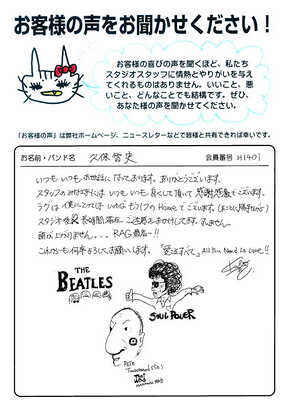 お客様の声をお聞かせください！
お客様の喜びの声を聞くほど、私たち
スタジオスタッフに情熱とやりがいを与え
てくれるものはありません。いいこと、悪
いこと、どんなことでも結構です。ぜひ、
あなた様の声を聞かせてください。
「お客様の声」は弊社ホームページ、ニュースレターなどで皆様と共有できれば幸いです。
お名前・バンド名 久保 哲史 会員番号 H1401
いつも いつも お世話になっております。ありがとうございます。
スタッフのみなさまには いつも いつも 良くして頂いて 感謝感激でございます。
ラグは 僕にとっては いわば もう1つの Home でございます
スタジオ後 長時間滞在 ご迷惑おかけしてます。すいません。
頭が上がりません・・・ RAG最高ー!!
これからも何卒よろしくお願いします。「愛こそすべて」 All You Need is Love!!
THE
BEATLES
SOUL POWER
PETE